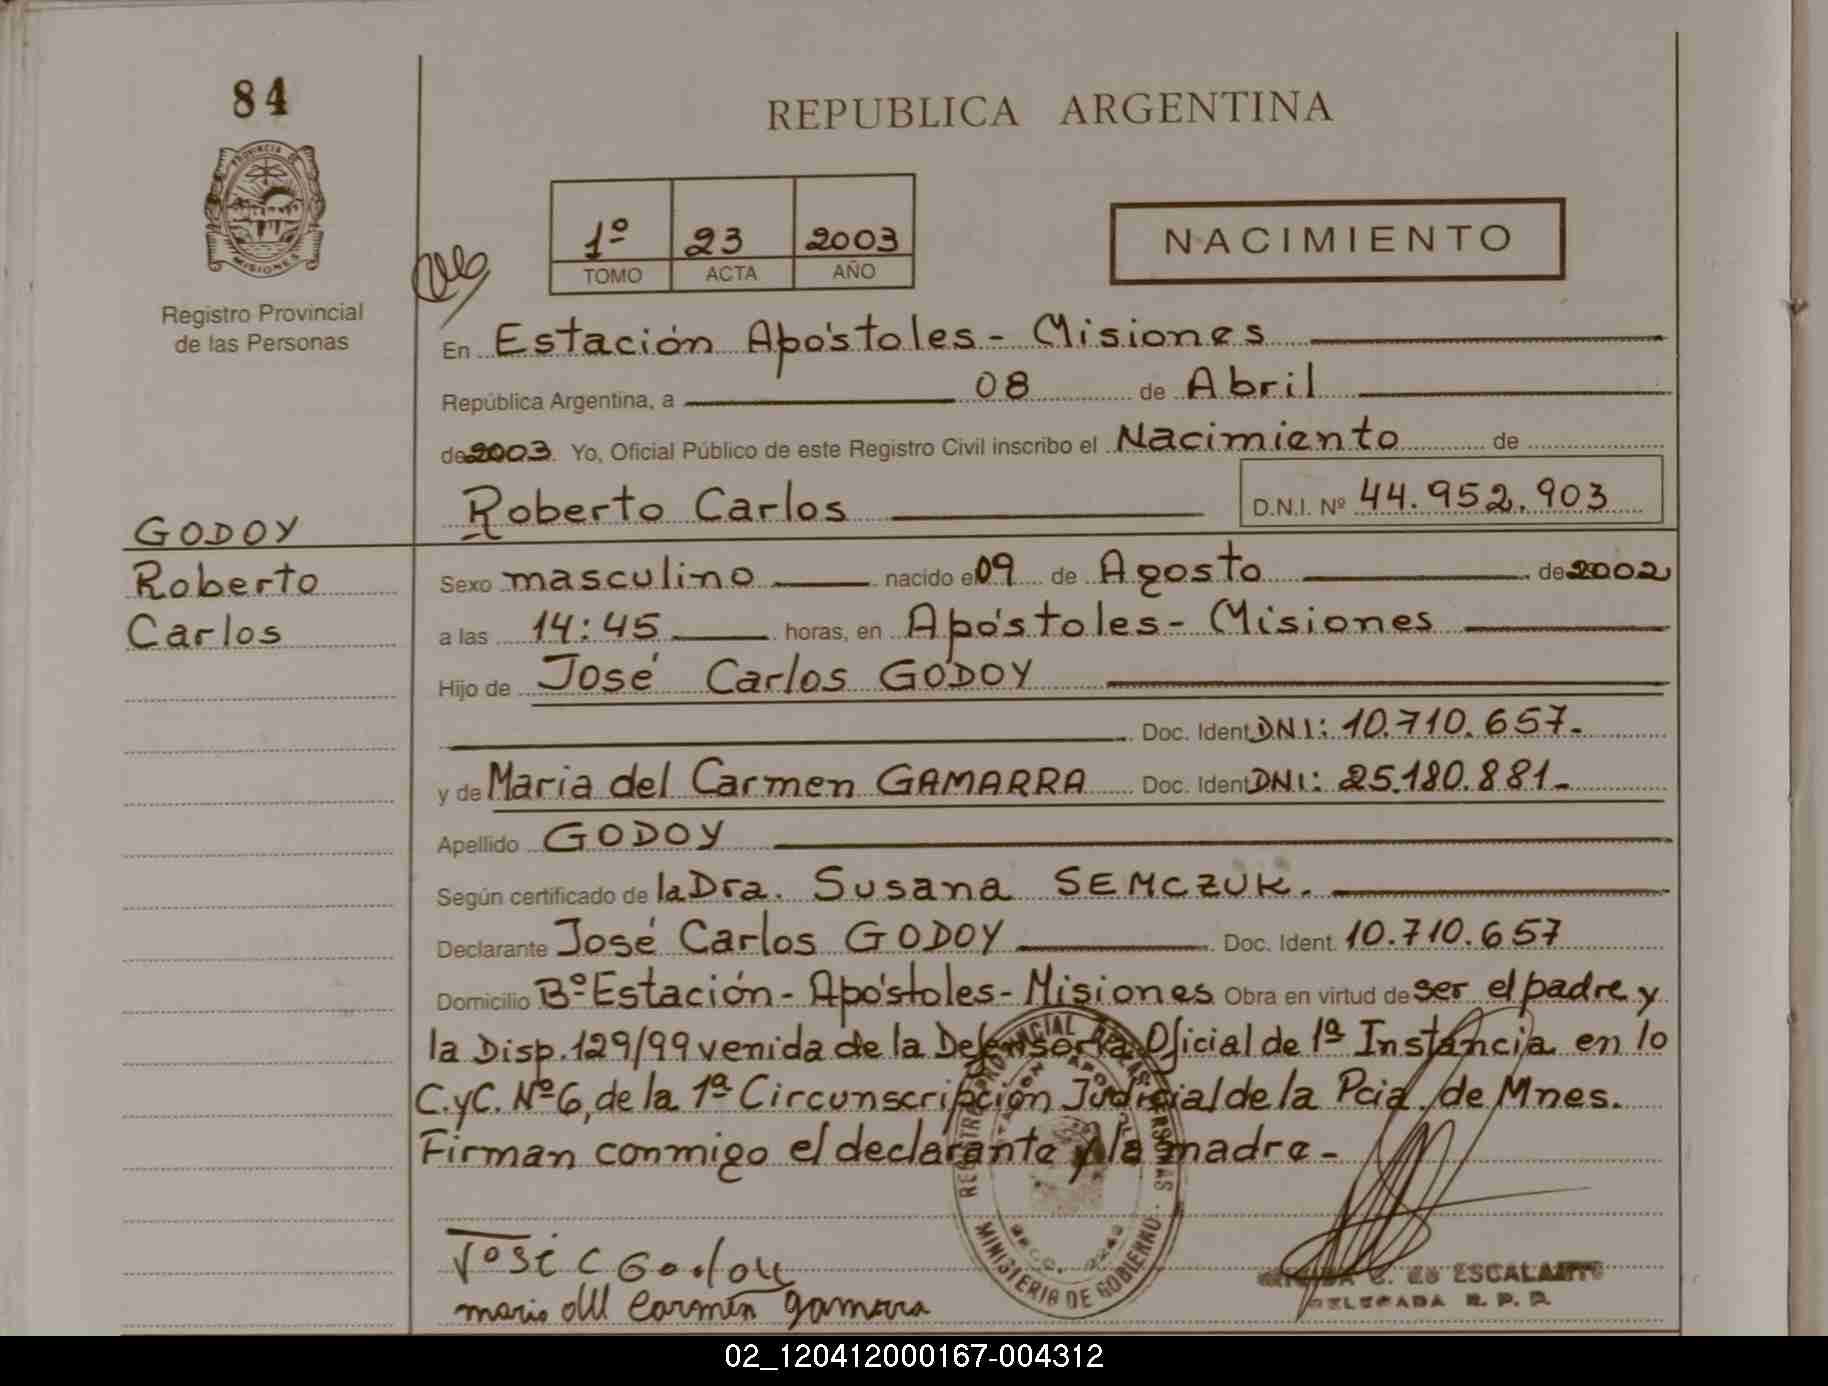 84
REPUBLICA ARGENTINA
PROVINCIA DE
MISIONES
Registro Provincial
de las Personas
1º 23 2003
TOMO ACTA AÑO
NACIMIENTO
En Estación Apóstoles - Misiones
República Argentina, a 08 de Abril
de 2003. Yo, Oficial Público de este Registro Civil inscribo el Nacimiento de
Roberto Carlos D.N.I. Nº 44.952.903
GODOY
Roberto
Carlos
Sexo masculino nacido el 09 de Agosto de 2002
a las 14:45 horas, en Apóstoles - Misiones
Hijo de José Carlos GODOY
Doc. Ident. DNI: 10.710.657.-
y de Maria del Carmen GAMARRA Doc. Ident. DNI: 25.180.881.-
Apellido GODOY
Según certificado de la Dra. Susana SEMCZUK.
Declarante José Carlos GODOY Doc. Ident. 10.710.657
Domicilio Bº Estación - Apóstoles - Misiones Obra en virtud de ser el padre y
la Disp. 129/99 venida de la Defensoría Oficial de 1ª Instancia en lo
C.yC. Nº 6, de la 1ª Circunscripción Judicial de la Pcia. de Mnes.
Firman conmigo el declarante y la madre -
REGISTRO PROVINCIAL DE LAS PERSONAS
MINISTERIO DE GOBIERNO
José C Godoy
maria del Carmen gamarra
ESCALANTE
DELEGADA R. P. P.
02_120412000167-004312